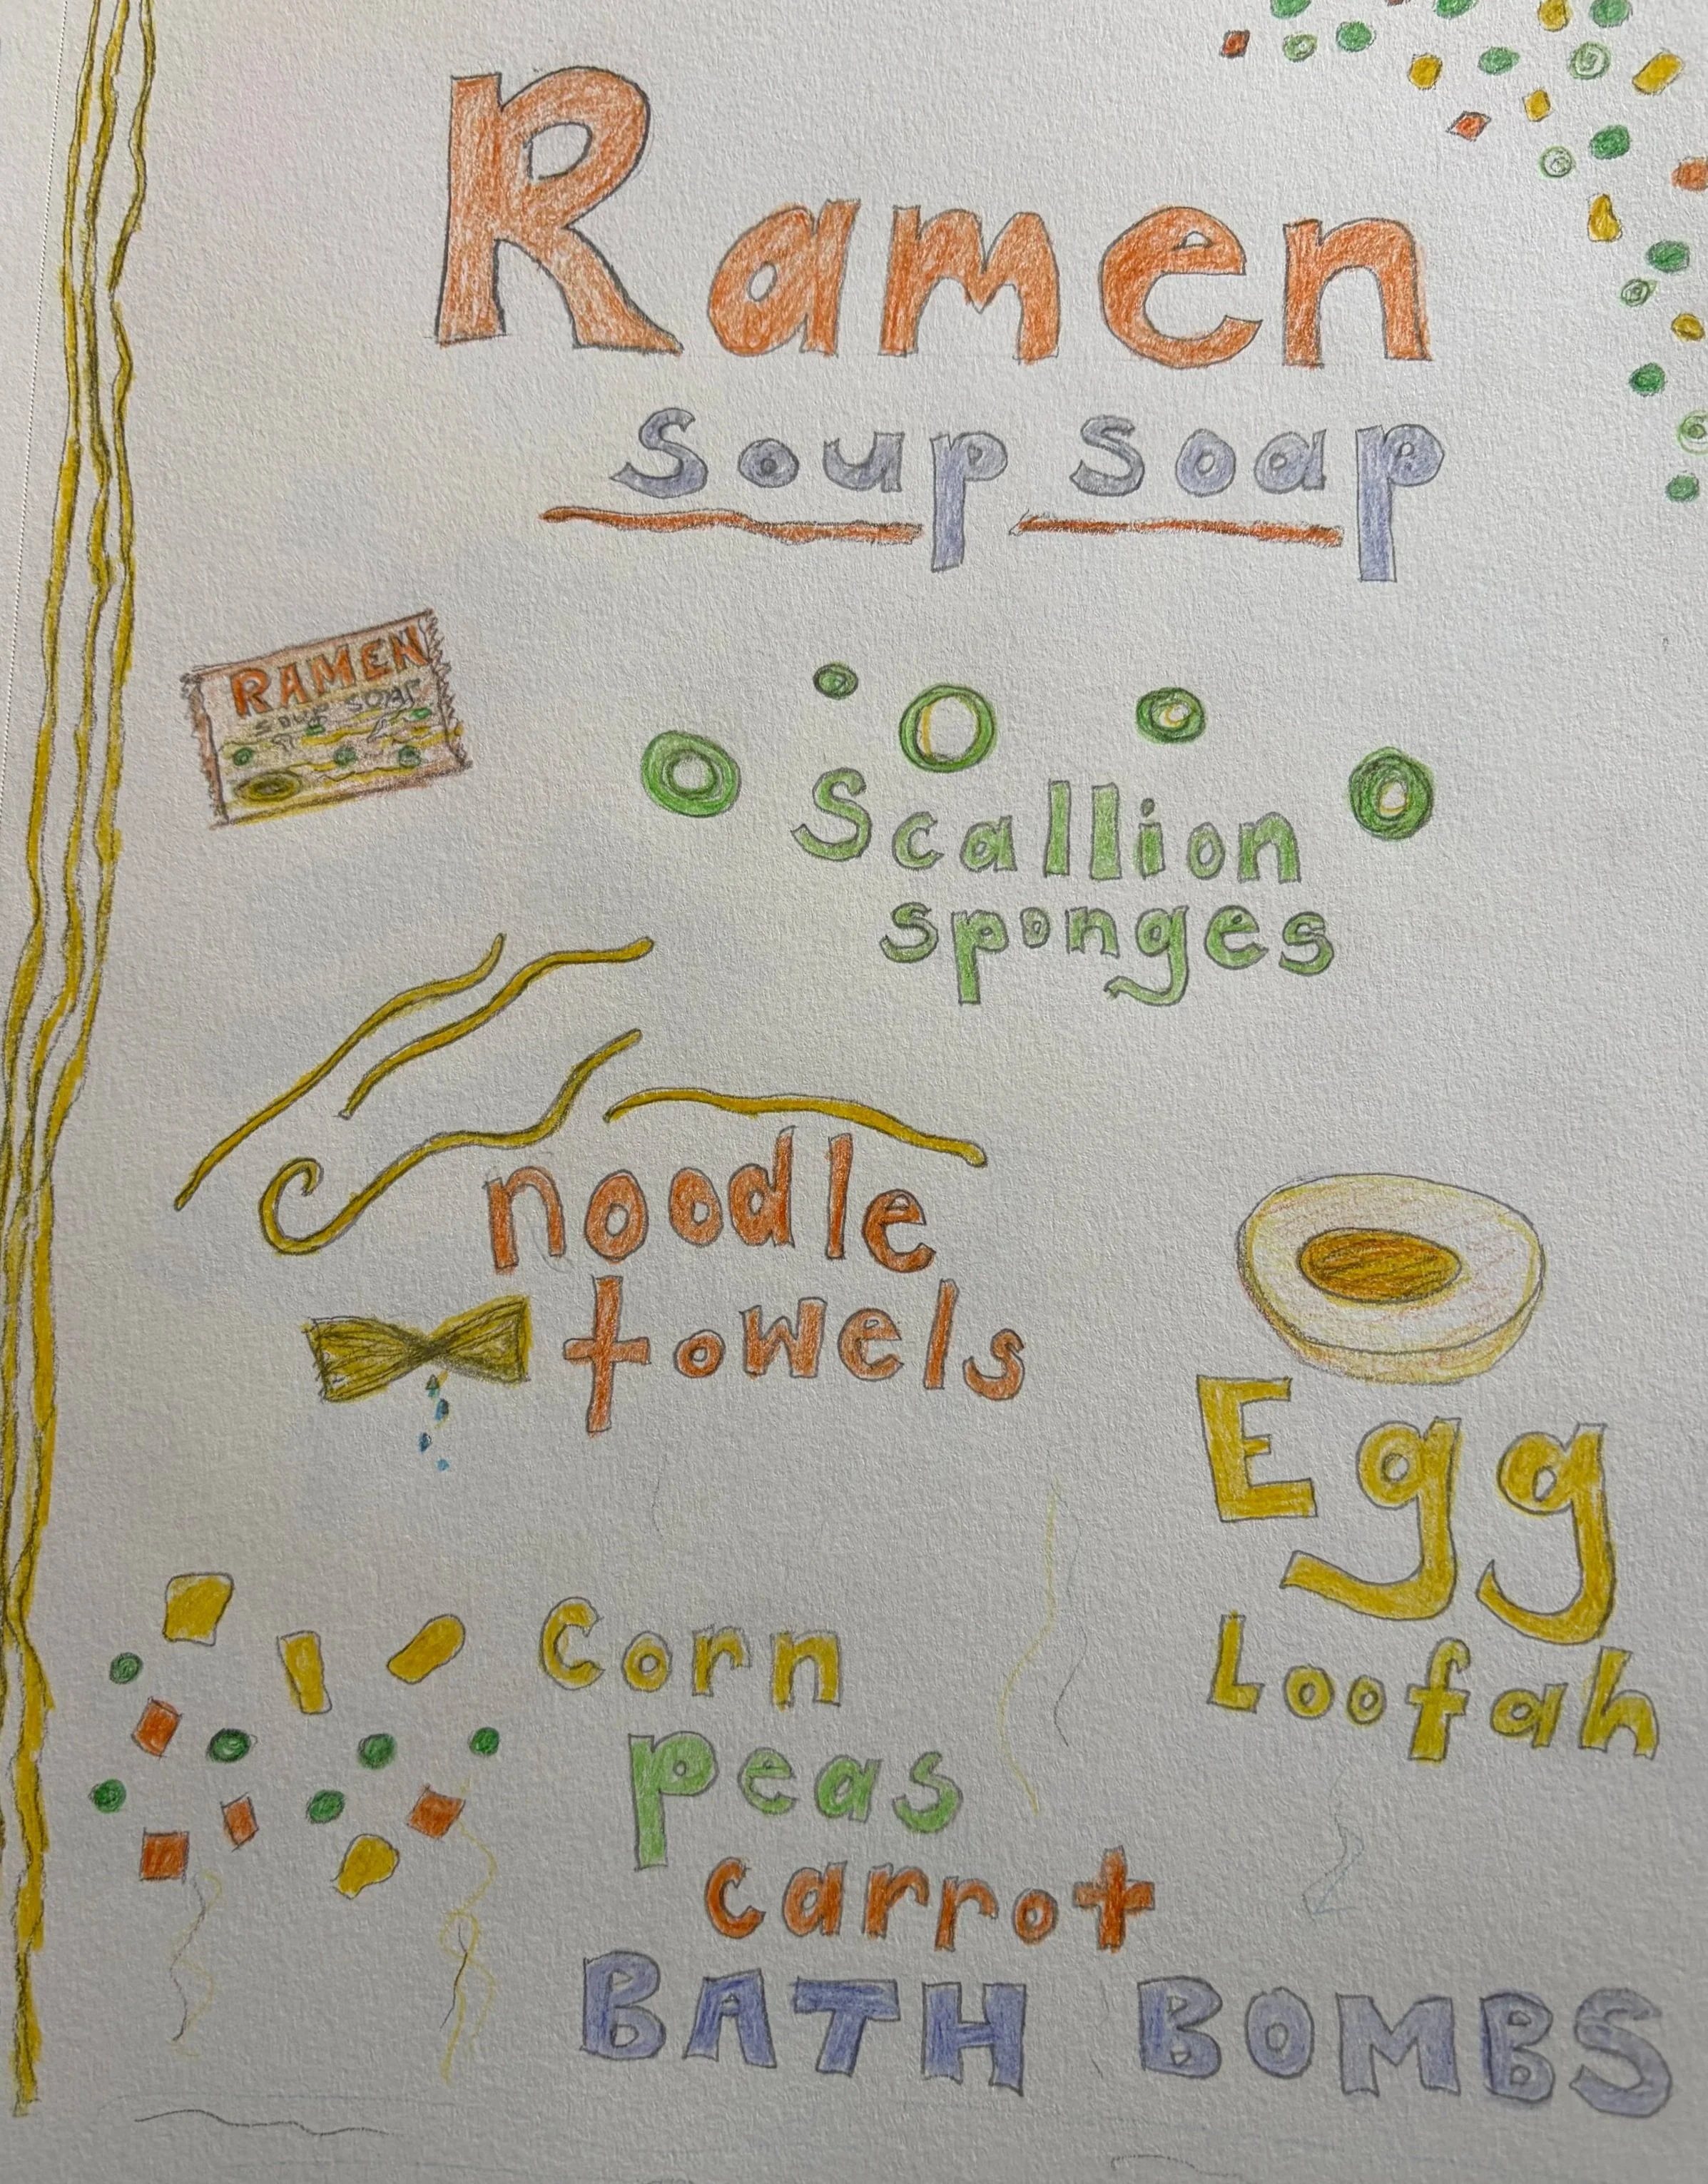 Ramen
Soup Soap
RAMEN
SOUP SOAP
Scallion
sponges
noodle
towels
Egg
Loofah
Corn
peas
carrot
BATH BOMBS